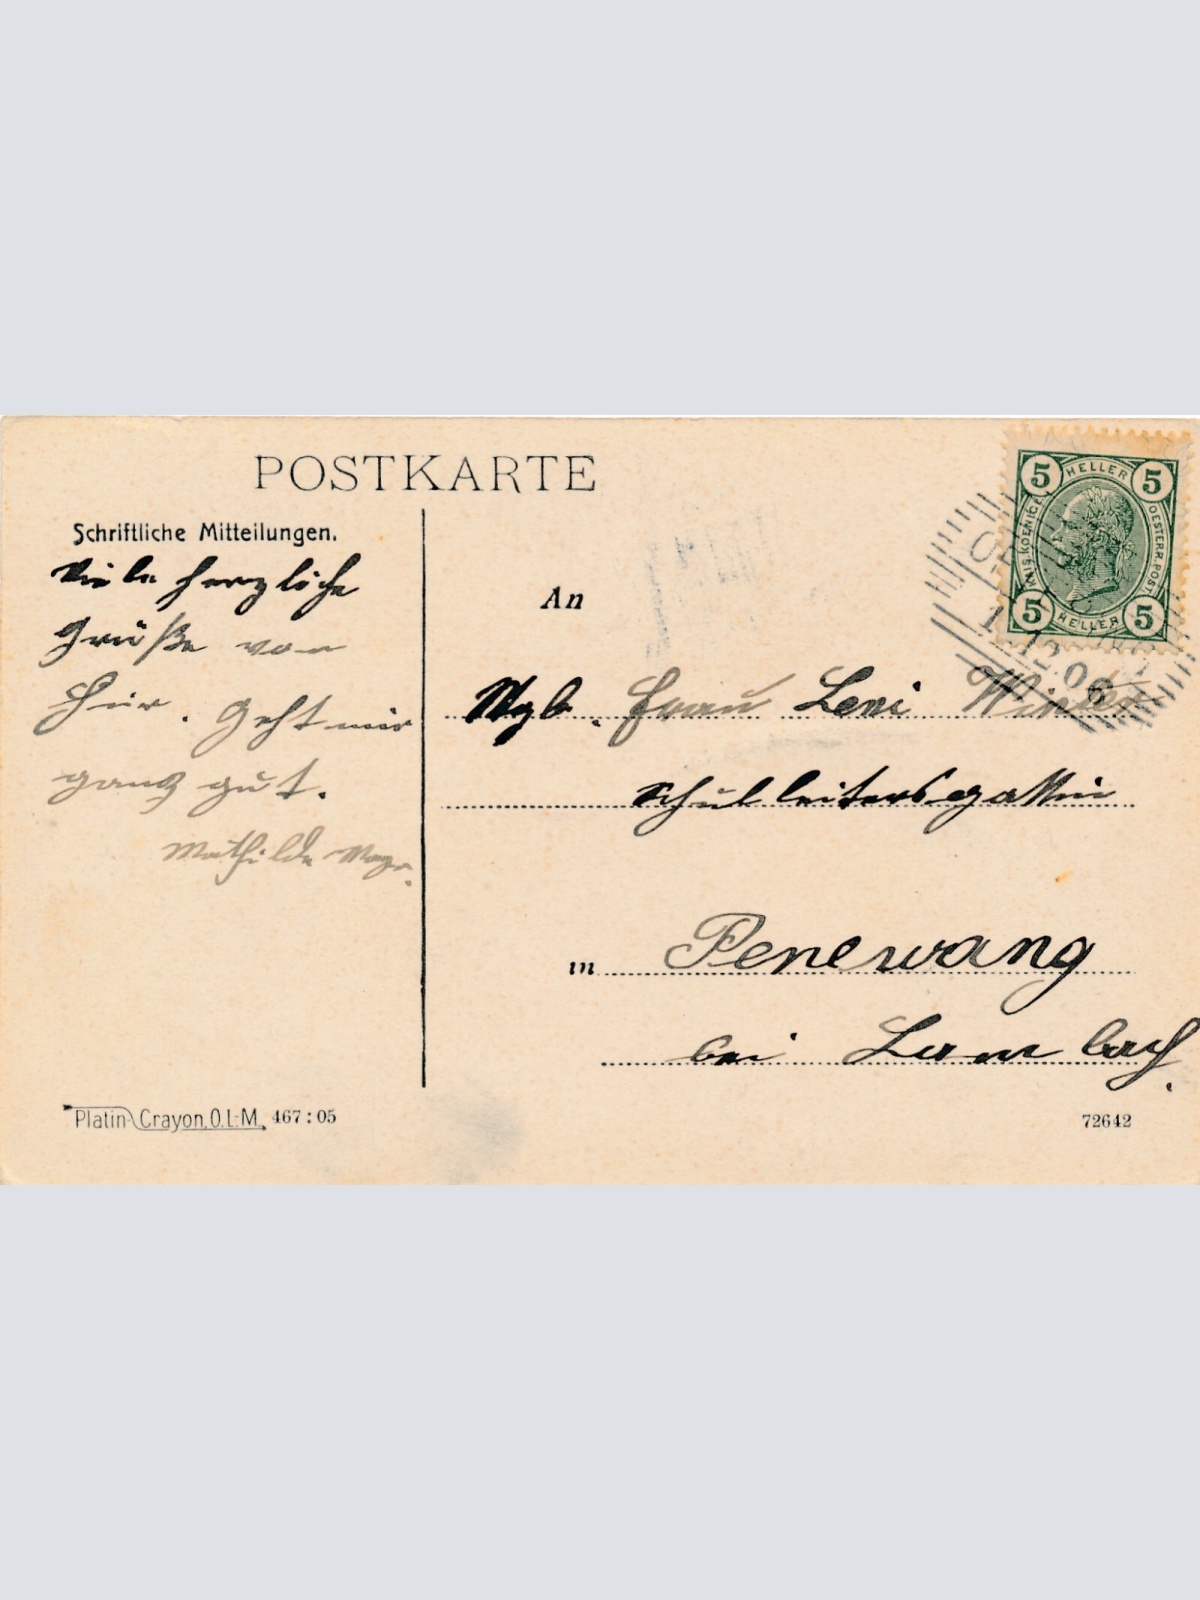 POSTKARTE
Schriftliche Mitteilungen.
Viele herzliche
Grüße von
hier. Geht mir
ganz gut.
Mathilde
An
Wgb. Frau Leni Winter
Schulleitersgattin
in Penewang
bei Lambach.
5 HELLER 5
KAIS. KOENIGL. OESTERR. POST.
5 HELLER 5
1.12.06
Platin-Crayon, O.L-M. 467:05
72642